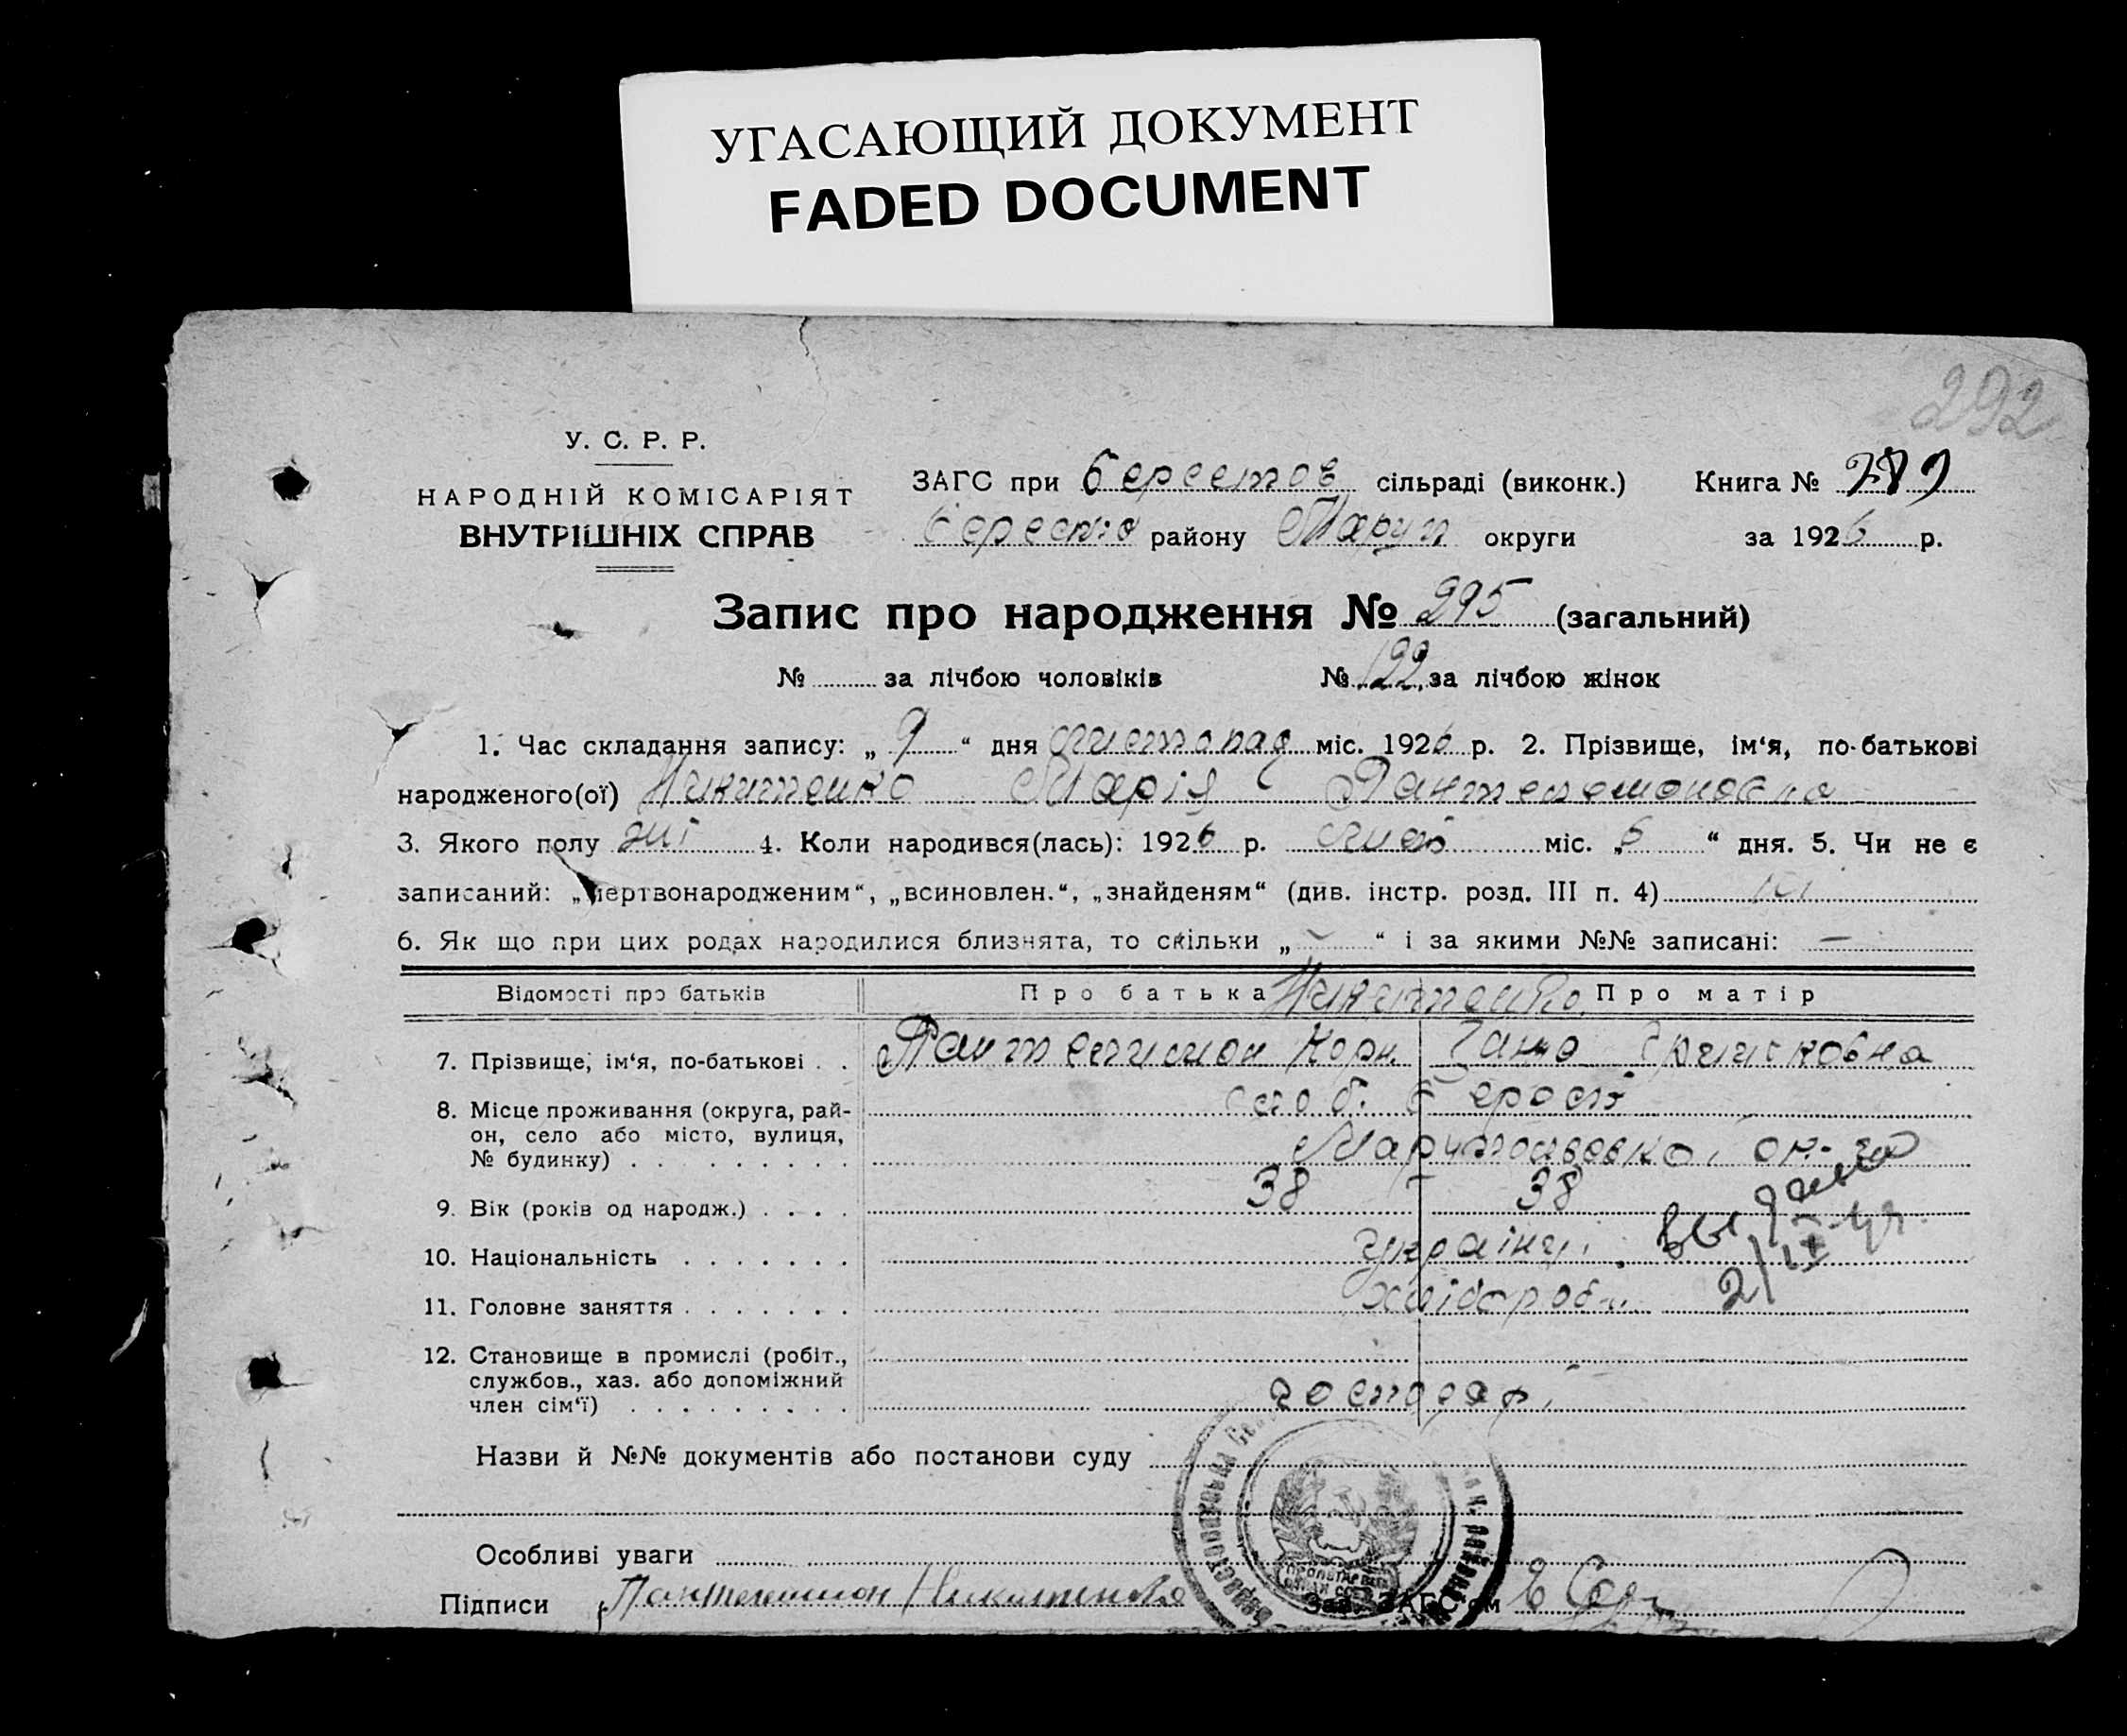 УГАСАЮЩИЙ ДОКУМЕНТ
FADED DOCUMENT
292
У. С. Р. Р.
НАРОДНІЙ КОМІСАРІЯТ
ВНУТРІШНІХ СПРАВ
ЗАГС при Берестов сільраді (виконк.) Книга №
району Маруп округи за 1926 р.
Запис про народження № 295 (загальний)
№ за лічбою чоловіків № 122 за лічбою жінок
1. Час складання запису: „ 9 “ дня листопад міс. 1926 р. 2. Прізвище, ім‘я, по-батькові
народженого(ої) Никитенко Марія Пантелемоновна
3. Якого полу жі 4. Коли народився(лась): 1926 р. міс. „ 6 “ дня. 5. Чи не є
записаний: „мертвонародженим“, „всиновлен.“, „знайденям“ (див. інстр. розд. III п. 4) ні
6. Як що при цих родах народилися близнята, то скільки „ - “ і за якими №№ записані: —
Відомості про батьків Про батька Никитенко Про матір
7. Прізвище, ім‘я, по-батькові . . Пантелимон Корн. Ганна
8. Місце проживання (округа, рай-он, село або місто, вулиця, № будинку) . . . . . . . . . Берест
Маріюпольсько, ок-ги
9. Вік (років од народж.) . . . . 38 38
10. Національність . . . . . . . україн.
11. Головне заняття . . . . . . . хлібороби
Выдано
2/IX
12. Становище в промислі (робіт., службов., хаз. або допоміжний член сім‘ї) . . . . . . . . . господар.
Назви й №№ документів або постанови суду
Особливі уваги
Підписи Пантелимон Никитенко Зав. ЗАГС‘ом